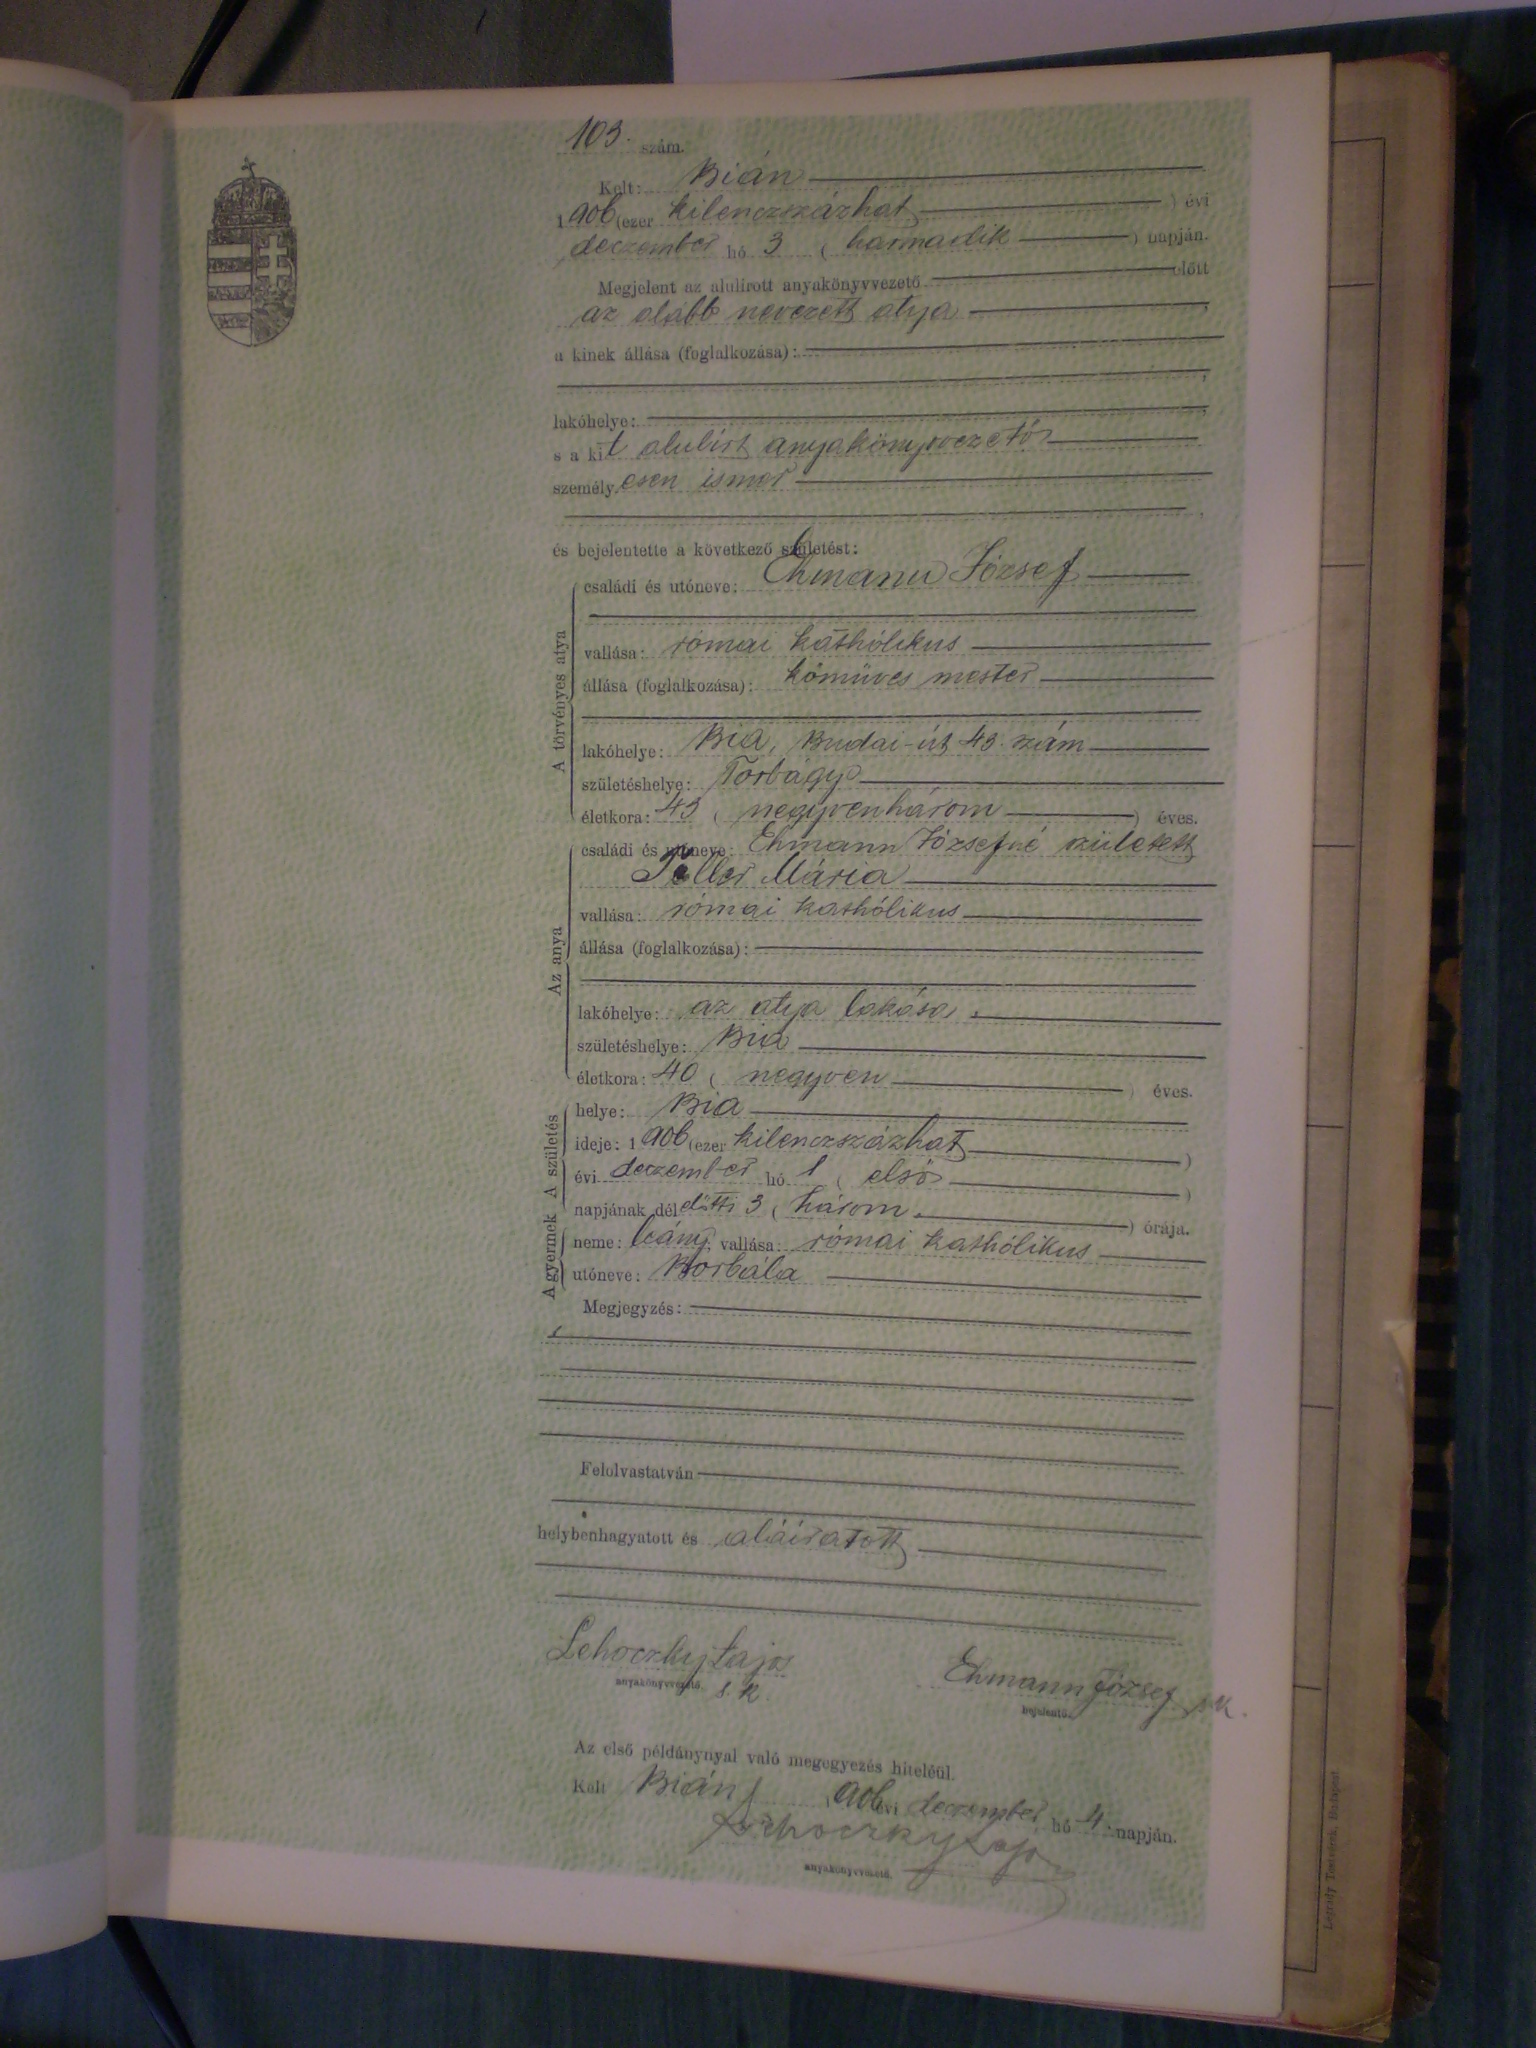 103. szám.
Kelt: Bián
1906 (ezer kilenczszázhat ) évi
deczember hó 3 ( harmadik ) napján.
Megjelent az alulírott anyakönyvvezető előtt
az alább nevezett atya ,
a kinek állása (foglalkozása):
,
lakóhelye: ,
s a kit alulírt anyakönyvvezető
személyesen ismer
,
és bejelentette a következő születést:
A törvényes atya
családi és utóneve: Ehmann József
vallása: római kathólikus
állása (foglalkozása): kőmüves mester
lakóhelye: Bia, Budai-út 43. szám
születéshelye: Torbágy
életkora: 43 ( negyvenhárom ) éves.
Az anya
családi és utóneve: Ehmann Józsefné született
Teller Mária
vallása: római kathólikus
állása (foglalkozása):
lakóhelye: az atya lakása.
születéshelye: Bia
életkora: 40 ( negyven ) éves.
A születés
helye: Bia
ideje: 1906 (ezer kilenczszázhat )
évi deczember hó 1 ( első )
napjának délelőtti 3 ( három. ) órája.
A gyermek
neme: leány, vallása: római kathólikus
utóneve: Borbála
Megjegyzés:
Felolvastatván
helybenhagyatott és aláíratott
Lehoczky Lajos Ehmann József s.k.
anyakönyvvezető. s.k. bejelentő.
Az első példánynyal való megegyezés hiteléül.
Kelt Bián, 1906 évi deczember hó 4. napján.
Lehoczky Lajos
anyakönyvvezető.
Légrády Testvérek, Budapest